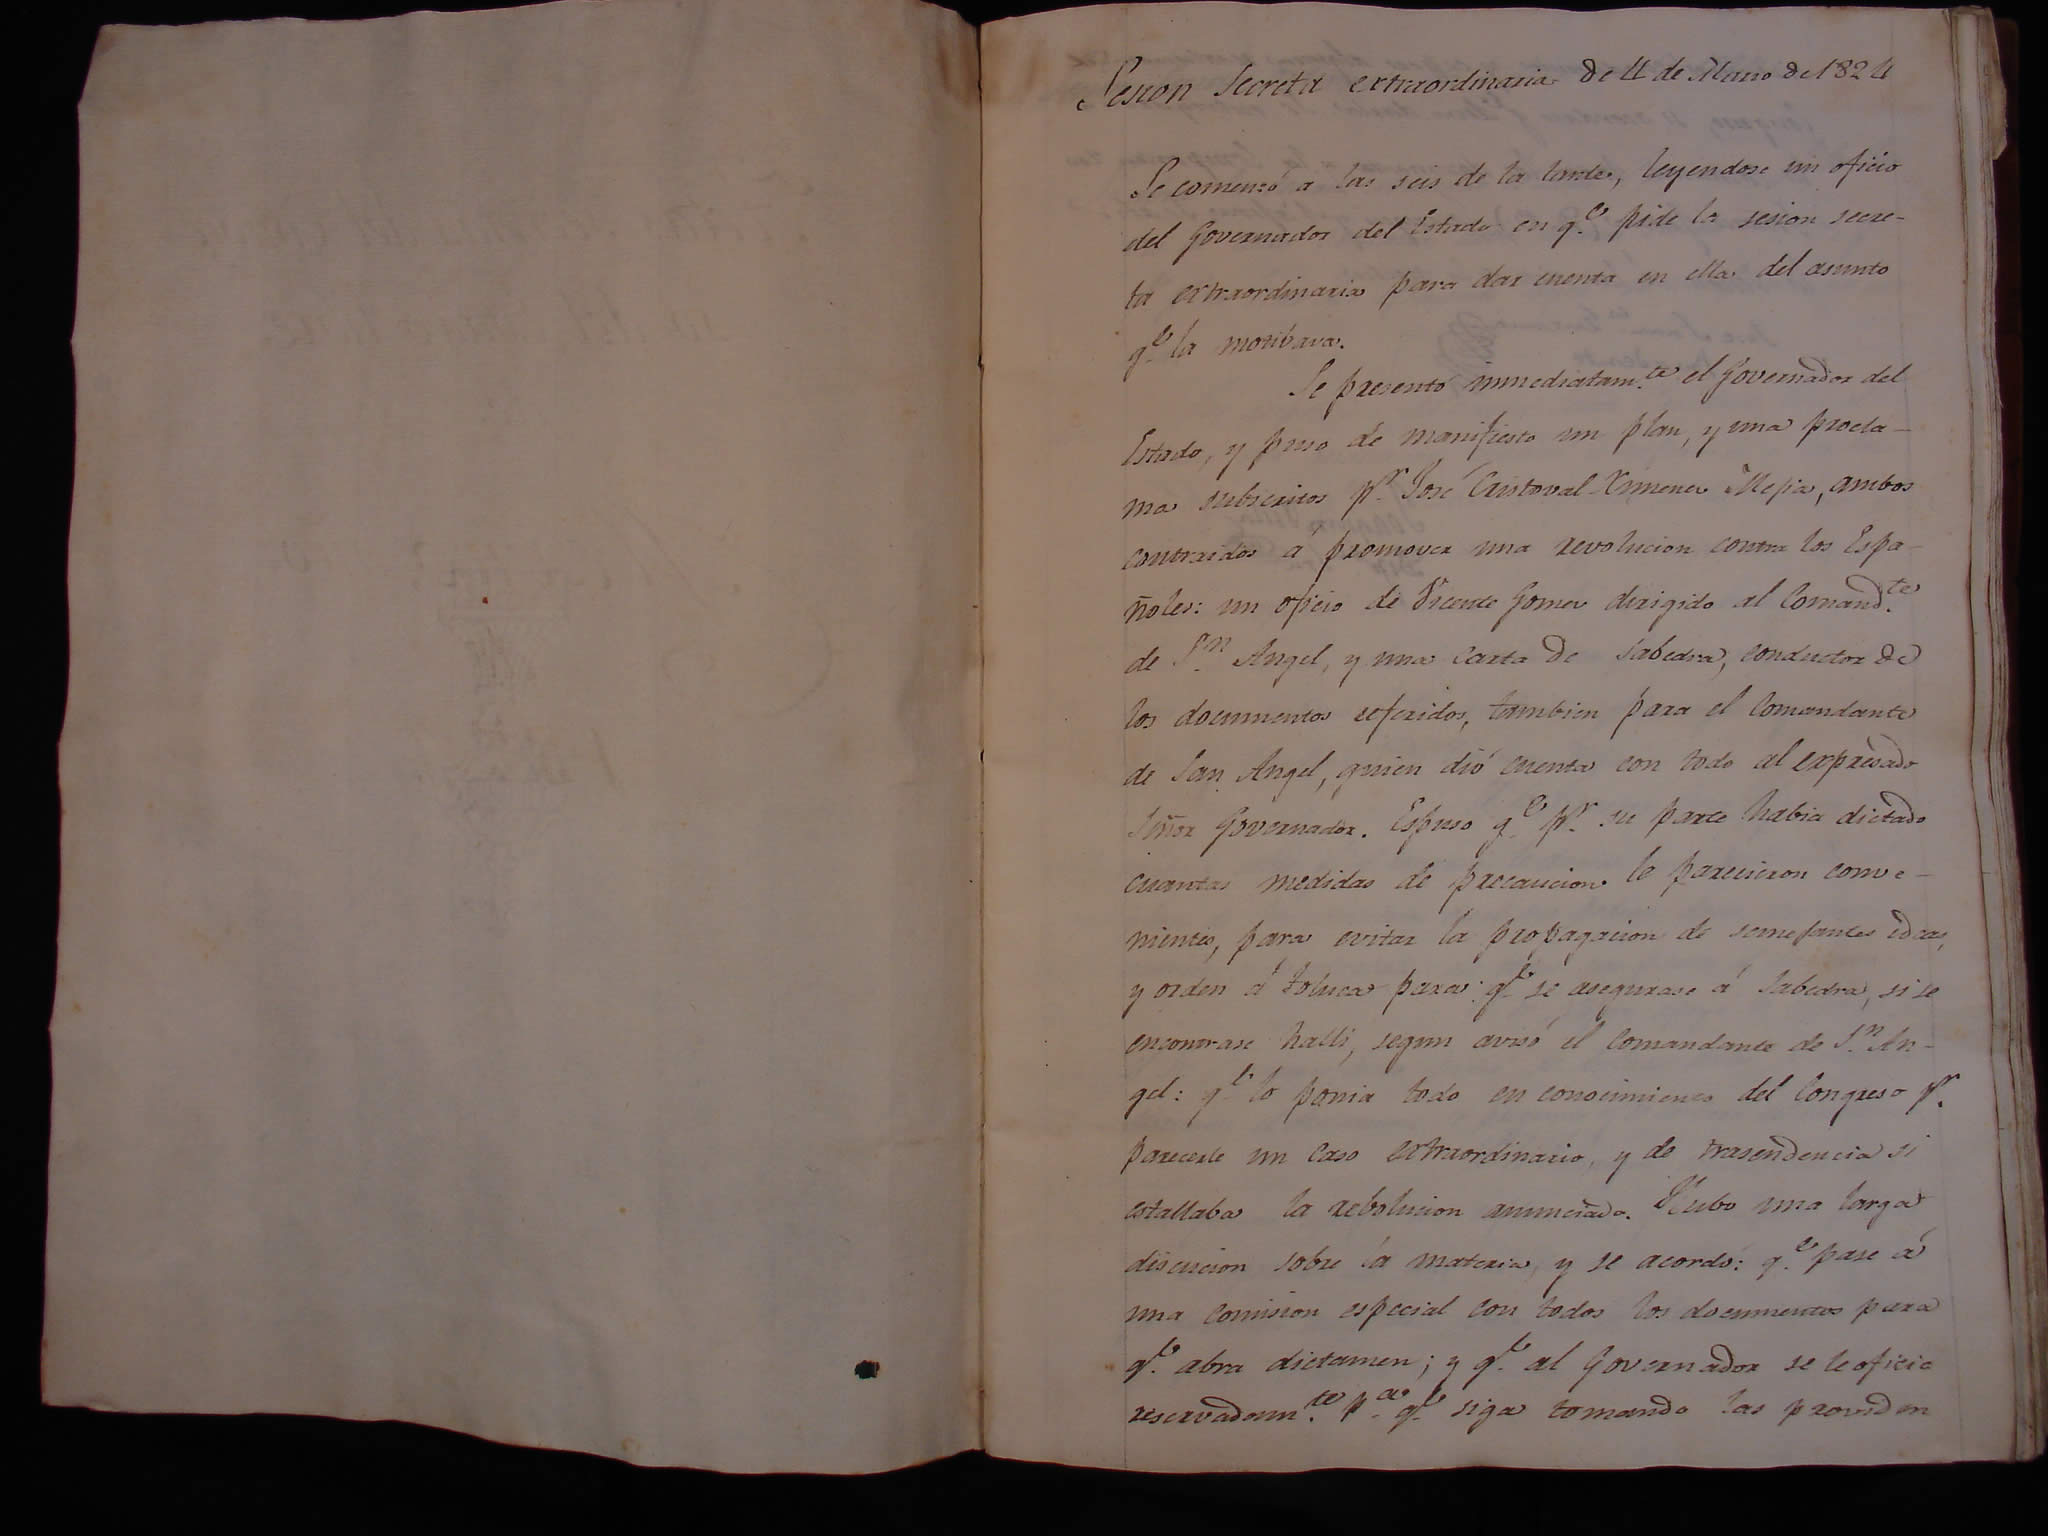 Sesion Secreta extraordinaria de 4 de Marzo de 1824
Se comenzó a las seis de la tarde, leyendose un oficio
del Governador del Estado en q.e pide la sesion secre-
ta extraordinaria para dar cuenta en ella del asunto
q.e la motibava.
Se presentó inmediatam.te el Governador del
Estado, y puso de manifiesto un plan, y una procla-
ma subscritos p.r José Cristoval Ximenez Mejia, ambos
contraidos á promover una revolucion contra los Espa-
ñoles: un oficio de Vicente Gomez dirigido al Comand.te
de S.n Angel, y una carta de Sabedra, conductor de
los documentos referidos, tambien para el Comandante
de San Angel, quien dió cuenta con todo al expresado
Señor Governador. Espuso q.e p.r su parte habia dictado
cuantas medidas de precaucion le parecieron conve-
nientes, para evitar la propagacion de semejantes ideas,
y orden á Toluca para q.e se asegurase á Sabedra, si se
encontrase halli, segun avisó el Comandante de S.n An-
gel: q.e lo ponia todo en conocimiento del Congreso p.r
parecerle un caso extraordinario, y de trasendencia si
estallaba la rebolucion anunciada. Hubo una larga
discucion sobre la materia, y se acordó: q.e pase á
una comision especial con todos los documentos para
q.e abra dictamen; y q.e al Governador se le oficie
reservadam.te p.a q.e siga tomando las providen